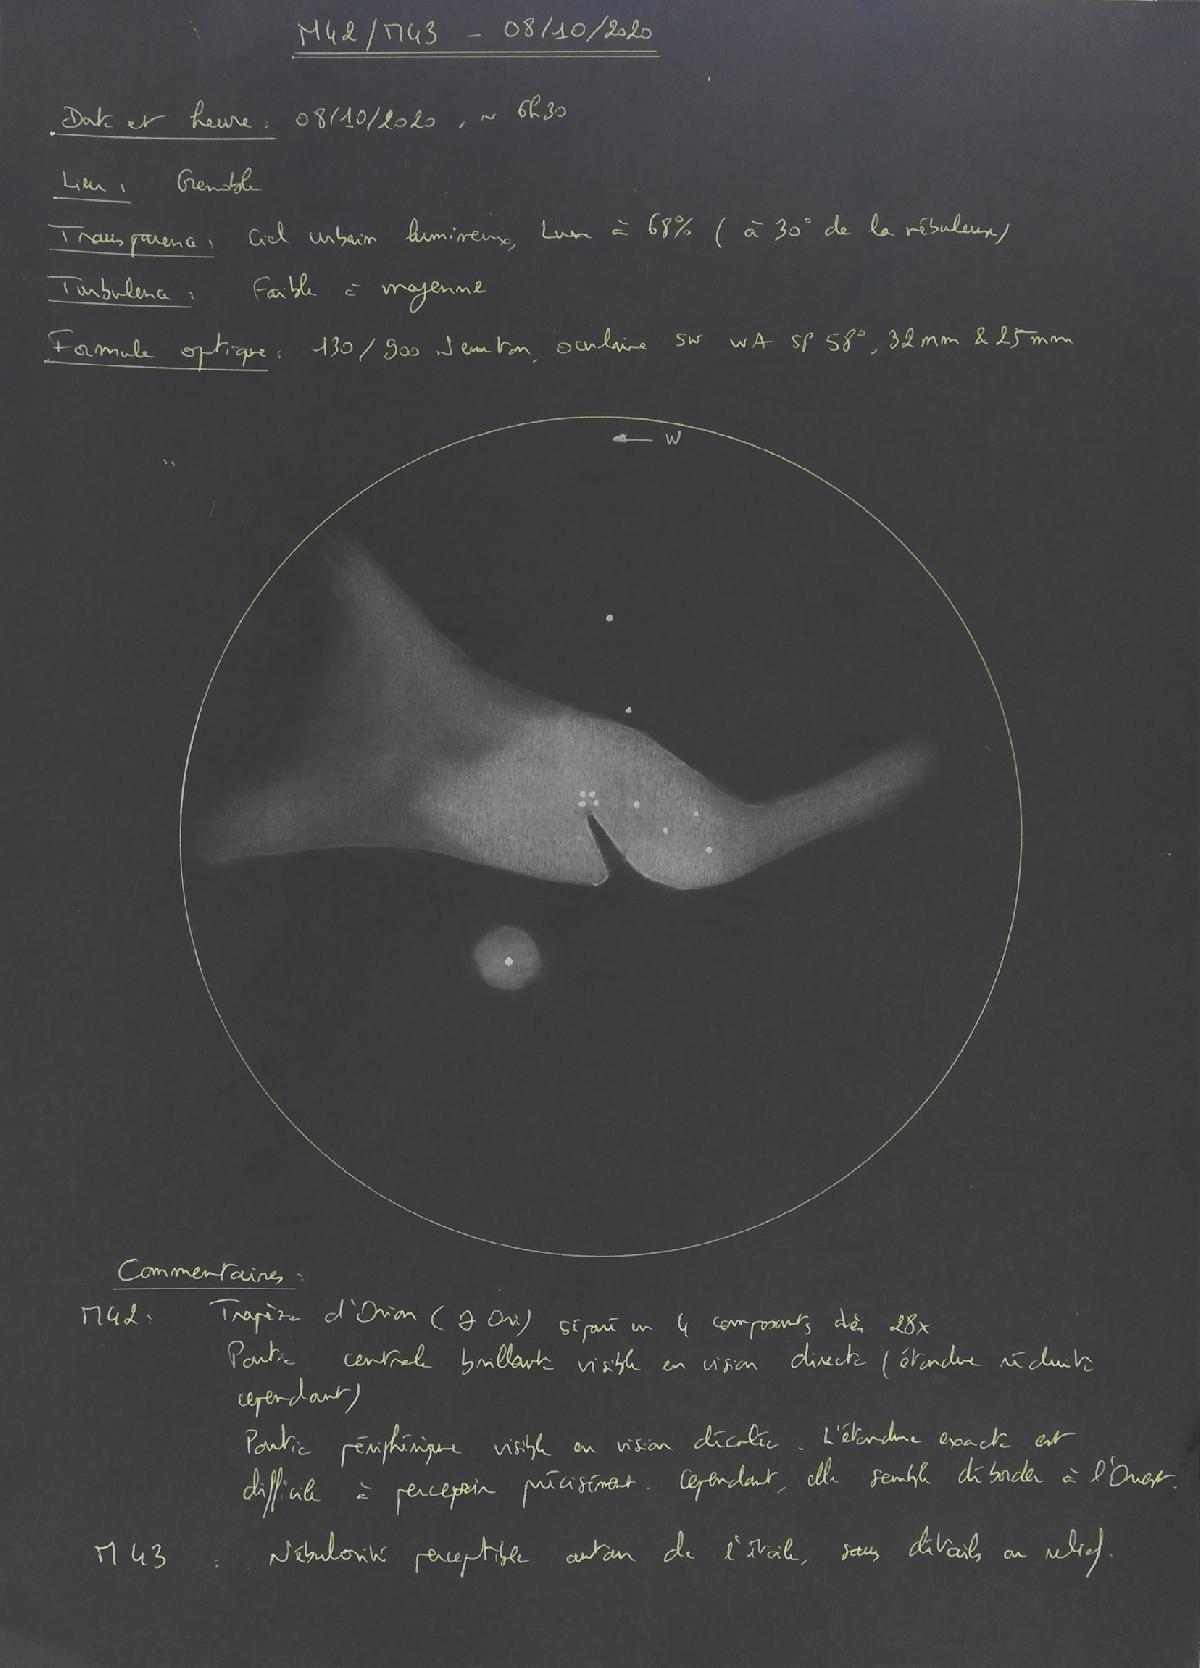 M42/M43 - 08/10/2020
Date et heure : 08/10/2020, ~ 6h30
Lieu : Grenoble
Transparence : Ciel urbain lumineux, Lune à 68% (à 30° de la nébuleuse)
Turbulence : Faible à moyenne
Formule optique : 130/900 Newton, oculaire SW WA SP 58°, 32mm & 25mm
← W
Commentaires :
M42 : Trapèze d'Orion (θ Ori) séparé en 4 composants dès 28x
Partie centrale brillante visible en vision directe (étendue réduite
cependant)
Partie périphérique visible en vision décalée. L'étendue exacte est
difficile à percevoir précisément. Cependant, elle semble déborder à l'Ouest.
M43 : Nébulosité perceptible autour de l'étoile, sans détails ou relief.